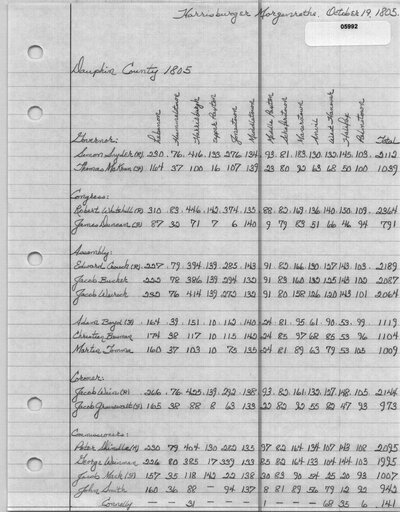 Harrisburger Morgenrothe, October 19, 1805.
05992
Dauphin County 1805
Lebanon Hummelstown Harrisburgh Upper Paxton Jonestown Middletown Middle Paxton Londonderry Hanover Annville West Hanover Halifax Palmstown
Governor: Total
Simon Snyder (R) 230 76 416 133 276 134 93 81 183 130 132 145 103 2112
Thomas McKean (R) 164 37 100 16 107 139 23 80 92 63 68 50 100 1039
Congress:
Robert Whitehill (R) 310 83 446 142 374 135 88 82 169 136 140 150 109 2364
James Duncan (R) 87 32 71 7 6 140 9 79 83 51 66 46 94 791
Assembly:
Edward Crouch (R) 227 79 394 139 285 143 91 82 166 130 157 143 103 2189
Jacob Bucher 222 78 386 139 294 132 91 83 160 132 125 143 102 2087
Jacob Weirick 232 76 414 139 272 132 91 80 158 126 120 143 101 2064
Adam Boyd (F) 164 39 151 10 112 140 24 81 95 61 90 53 99 1119
Christian Bauman 174 38 117 10 115 142 24 85 97 68 85 53 96 1104
Martin 160 37 103 10 75 135 24 81 89 63 79 53 105 1009
Coroner:
Jacob Wein (R) 266 76 425 139 292 138 93 82 161 132 127 148 105 2144
Jacob (F) 165 38 88 8 63 133 22 82 92 55 82 47 93 973
Commissioners:
Peter Shindle (R) 230 79 404 130 282 135 97 82 164 134 107 143 108 2095
George Weinman 226 80 385 17 339 133 85 82 164 133 104 144 103 1995
Jacob Mack (F) 157 35 118 142 22 138 30 83 90 54 25 20 93 1007
John Smith 160 36 88 – 94 137 8 81 89 56 79 12 92 942
Connelly – – 31 – – – – – – 1 68 35 6 141